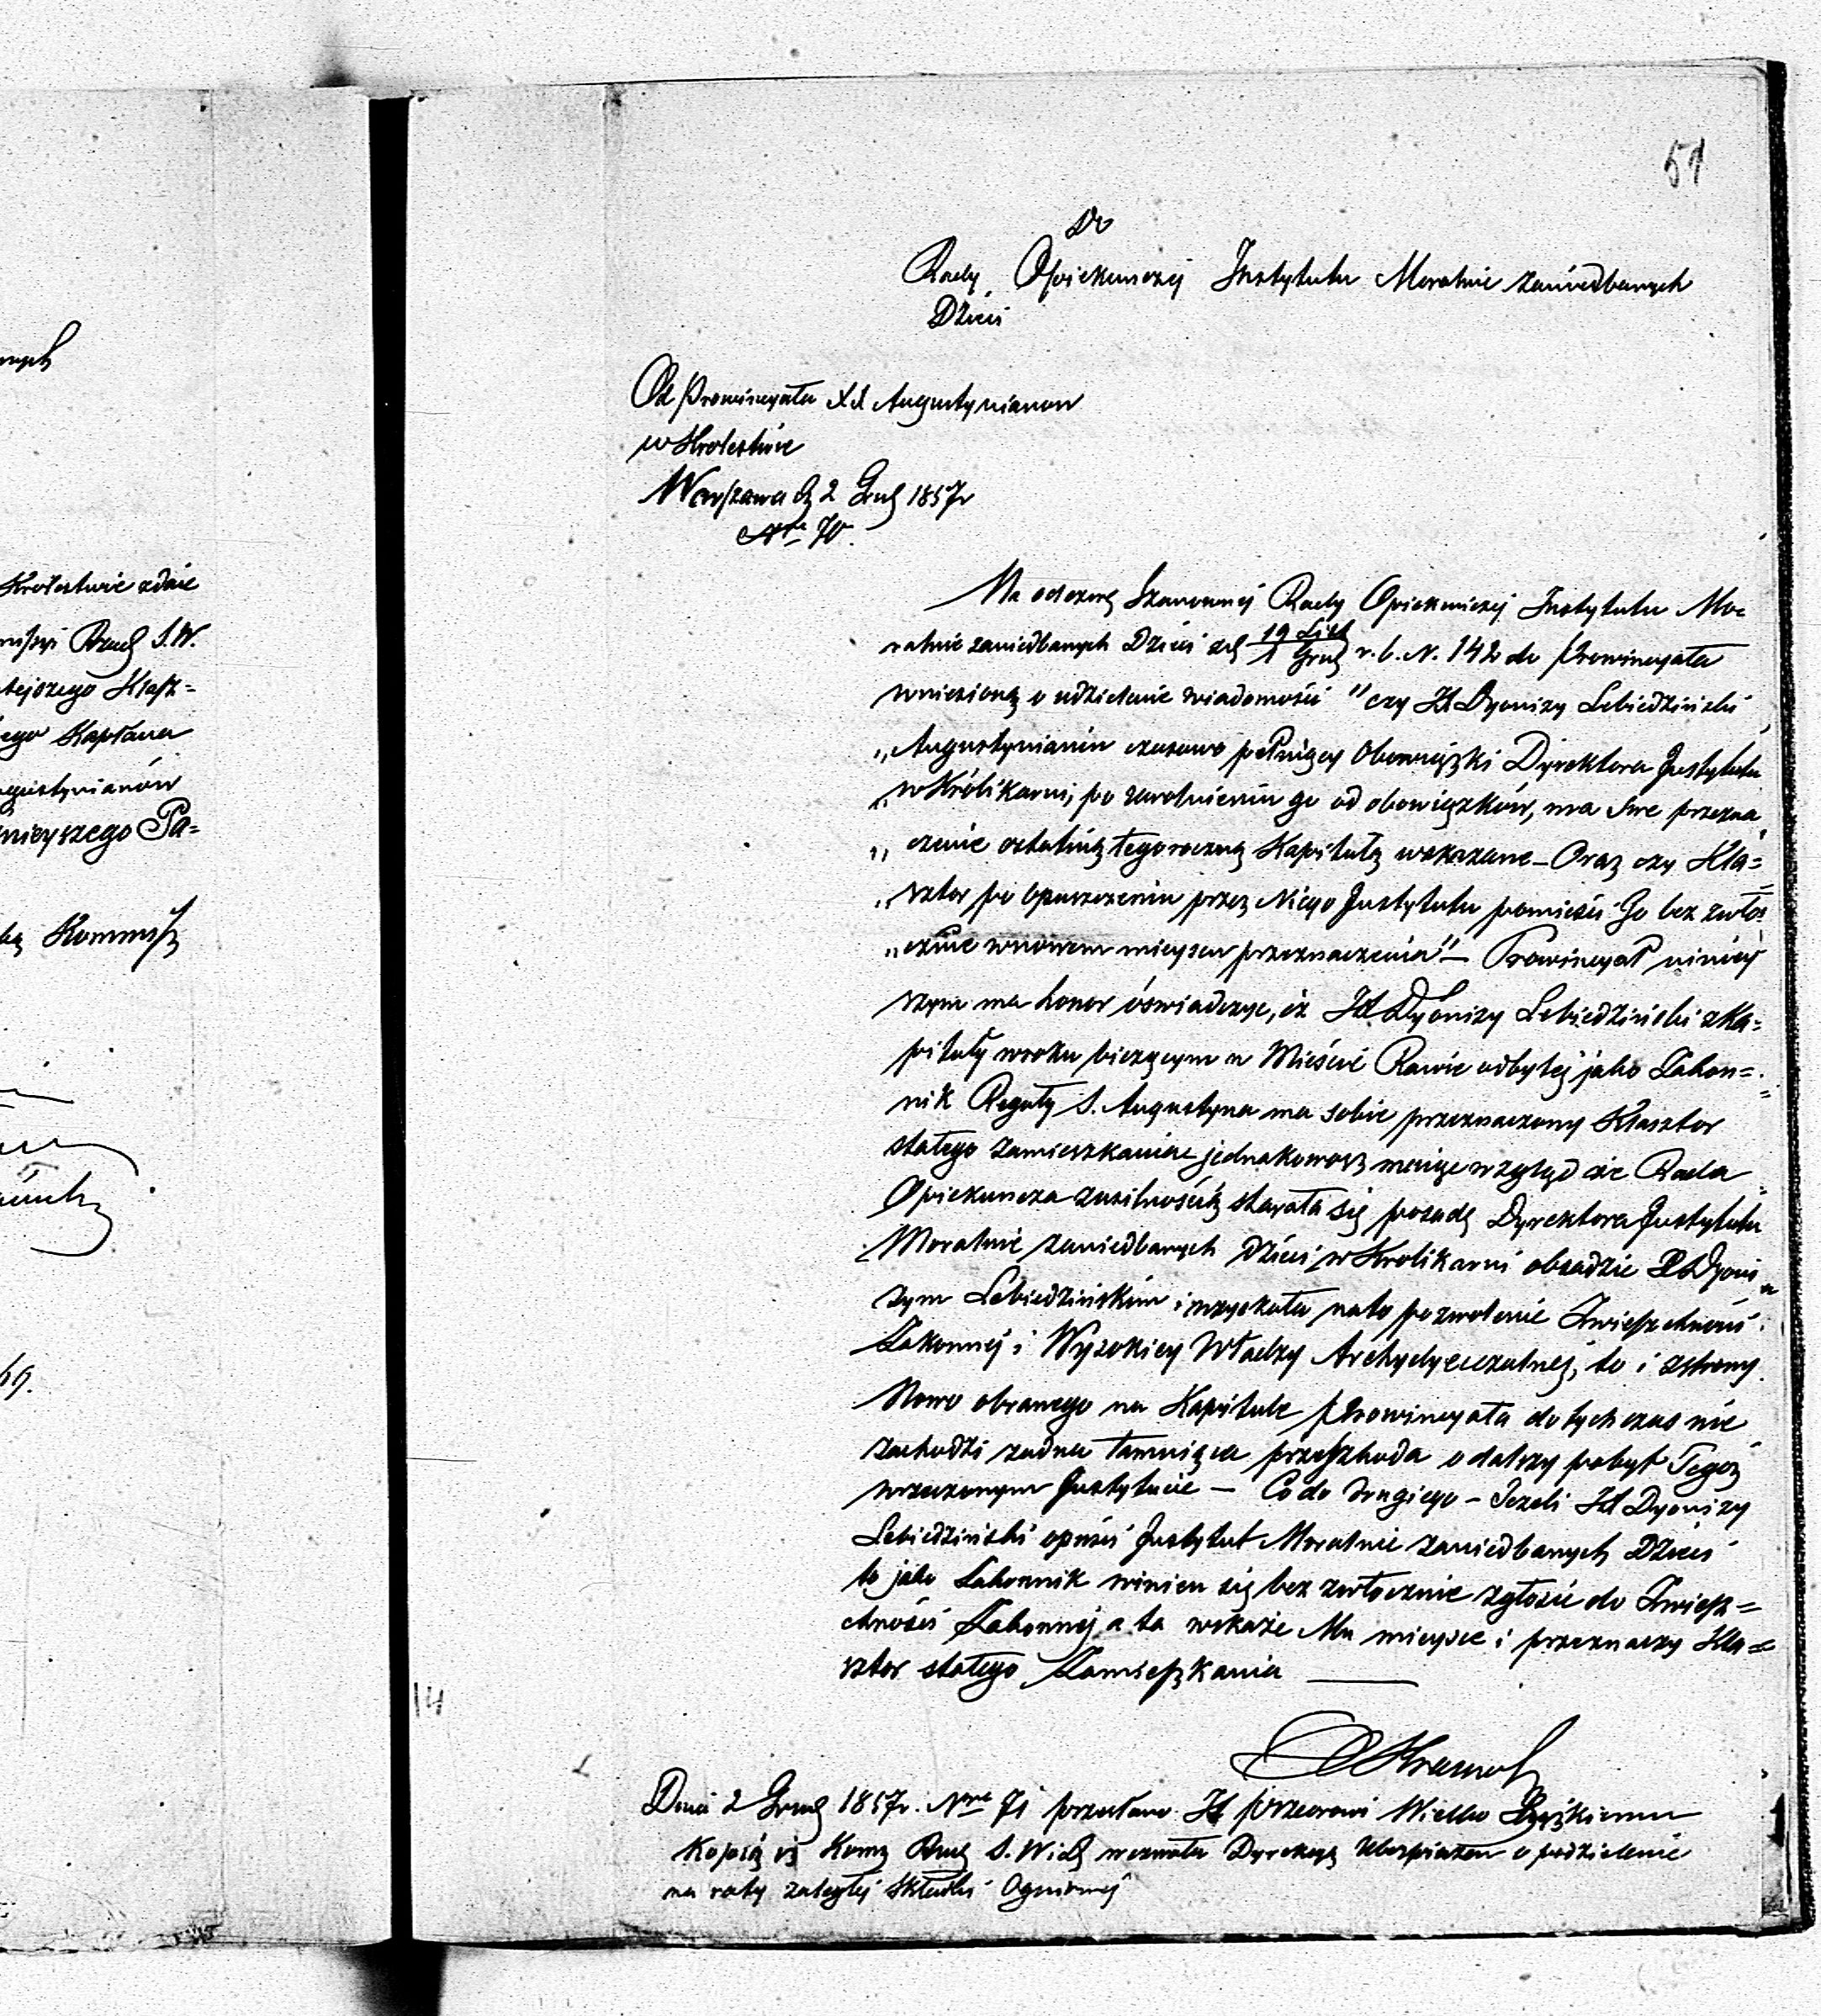 51
Do
Rady Opiekunczej Instytutu Moralnie zaniedbanych
Dzieci
Od Prowincyała XX Augustynianow
w Krolestwie
Warszawa d 2 Grud 1857r
Nro 70.
Na odezwę Szanownej Rady Opiekunczej Instytutu Mo=
ralnie zaniedbanych Dzieci zd 19 List / 1 Grud r. b. N. 142 do Prowincyała
wniesioną o udzielenie wiadomości "czy X Dyonizy Lebiedziński
„Augustynianin czasowo pełniący Obowiązki Dyrektora Instytutu
„w Królikarni, po uwolnieniu go od obowiązków, ma swe przezna
„czenie ostatnią tegoroczną Kapitułą wskazane – Oraz czy Kla=
„sztor po opuszczeniu przez Niego Instytutu pomieści Go bez zwło
„cznie w nowem miejscu przeznaczenia" – Prowincyał niniej
szym ma honor oświadczyc, iz X Dyonizy Lebiedzinski z Ka=
pituły w roku biezącym w Mieście Rawie odbytej jako Zakon=
nik Reguły S. Augustyna ma sobie przeznaczony Klasztor
stałego zamieszkania jednakowoz mając wzgląd ze Rada
Opiekuncza z usilnością starała się posadę Dyrektora Instytutu
Moralnie zaniedbanych Dzieci w Krolikarni obsadzic X Dyoni
zym Lebiedzińskim i uzyskała na to pozwolenie Zwierzchnosci
Zakonnej i Wysokiey Władzy Archydyecezalnej, to i z strony
Nowo obranego na Kapitule Prowincyała dotychczas nie
zachodzi zadna tamująca przeszkoda o dalszy pobyt Tegoz
w rzeczonym Instytucie – Co do drugiego – Jezeli X Dyonizy
Lebiedziński opuści Instytut Moralnie zaniedbanych Dzieci
to jako Zakonnik winien się bez zwłocznie zgłosic do Zwierz=
chności Zakonnej a ta wskaże Mu miejsce i przeznaczy Kla=
sztor stałego Zamieszkania
Dnia 2 Grud 1857r. Nro 71 przesłano X przeorowi
Kopią iż Komą Rząd S. W i D wezwała Dyrekcyą Ubezpieczen o podzielenie
na raty zaległej składki Ogniowej
14
Krolestwie zdnie
Rząd S. W.
tejszego Klasz=
ego Kapłana
gustynianów
nieyszego Pa=
69.